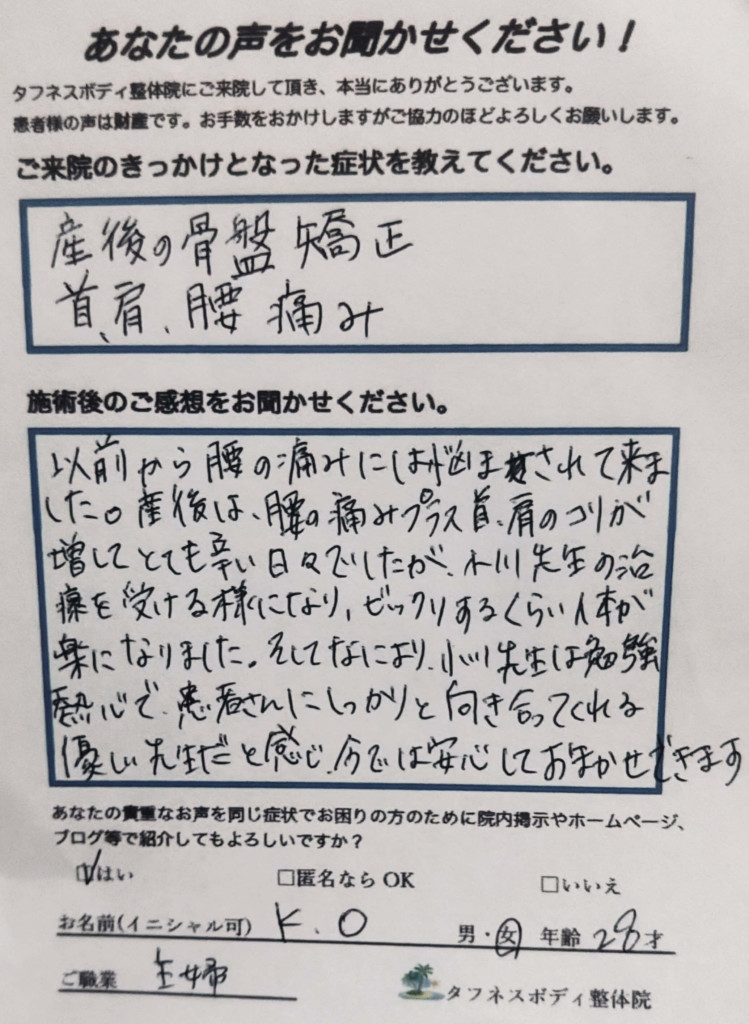 あなたの声をお聞かせください！
タフネスボディ整体院にご来院して頂き、本当にありがとうございます。
患者様の声は財産です。お手数をおかけしますがご協力のほどよろしくお願いします。
ご来院のきっかけとなった症状を教えてください。
産後の骨盤矯正
首、肩、腰痛み
施術後のご感想をお聞かせください。
以前から腰の痛みには悩まされて来ま
した。産後は、腰の痛みプラス首、肩のコリが
増してとても辛い日々でしたが、小川先生の治
療を受ける様になり、ビックリするくらい体が
楽になりました。そしてなにより、小川先生は勉強
熱心で、患者さんにしっかりと向き合ってくれる
優しい先生だと感じ、今では安心しておまかせできます
あなたの貴重なお声を同じ症状でお困りの方のために院内掲示やホームページ、
ブログ等で紹介してもよろしいですか？
☑はい □匿名ならOK □いいえ
お名前(イニシャル可) K.O 男・女 年齢 28才
ご職業 主婦 タフネスボディ整体院